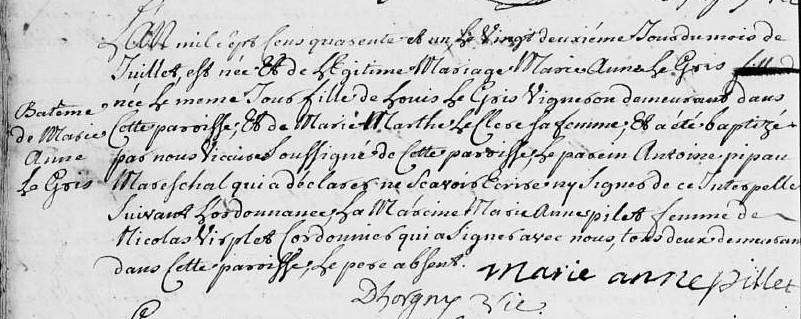 L'an mil sept cens quarente et un Le Vingt deuxiéme Jour du mois de
Juillet est née Et de Legitime Mariage Marie Anne Le Gris
née Le meme Jour fille de Louis Le Gris Vigneron demeurant dans
Cette paroisse, Et de Marie Marthe Le Clerc sa femme, Et a été baptizée
par nous Vicaire Soussigné de Cette paroisse, Le parein Antoine pipau
Mareschal qui a déclarer ne Scavoir Ecrire ny Signer de ce Interpellé
Suivant L'ordonnance, La Mareine Marie Anne pilet femme de
Nicolas Virplet Cordonnier qui a Signer avec nous, tous deux demeurant
dans Cette paroisse, Le pere absent.
Marie anne pillet
Dhorgny Vic.
Batême
de Marie
Anne
Le Gris